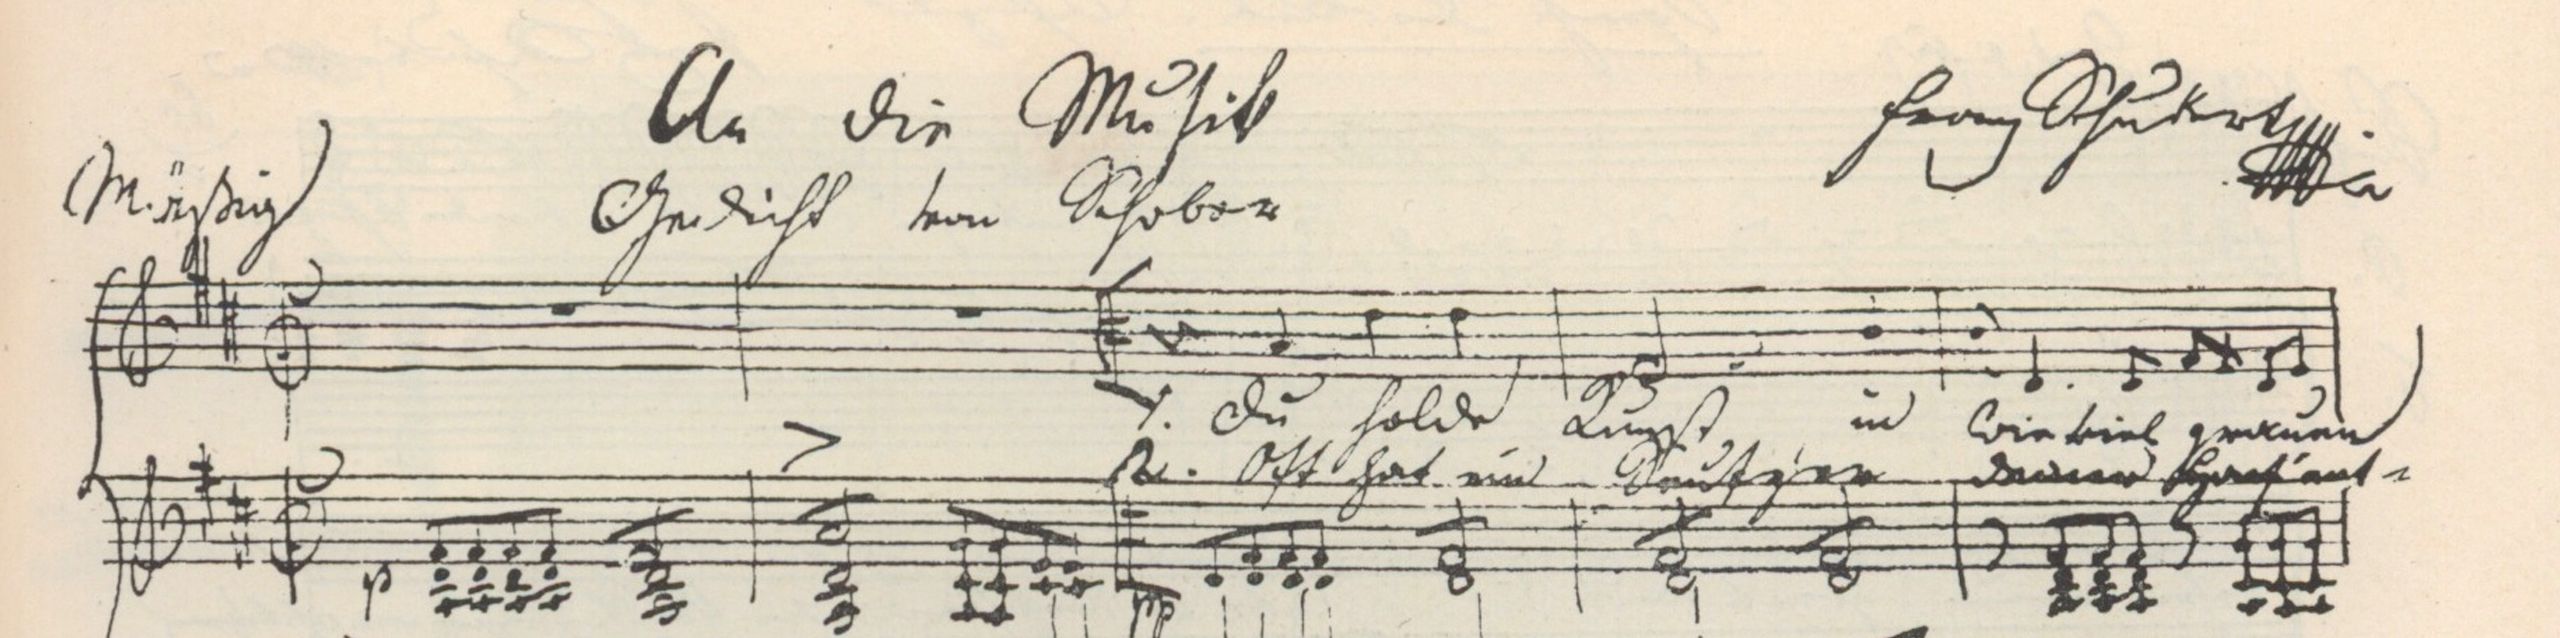 An die Musik
Franz Schubert
(Mäßig)
Gedicht von Schober
1. Du holde Kunst in wie viel grauen
p
2. Oft hat ein Seufzer deiner Harf' ent-
pp